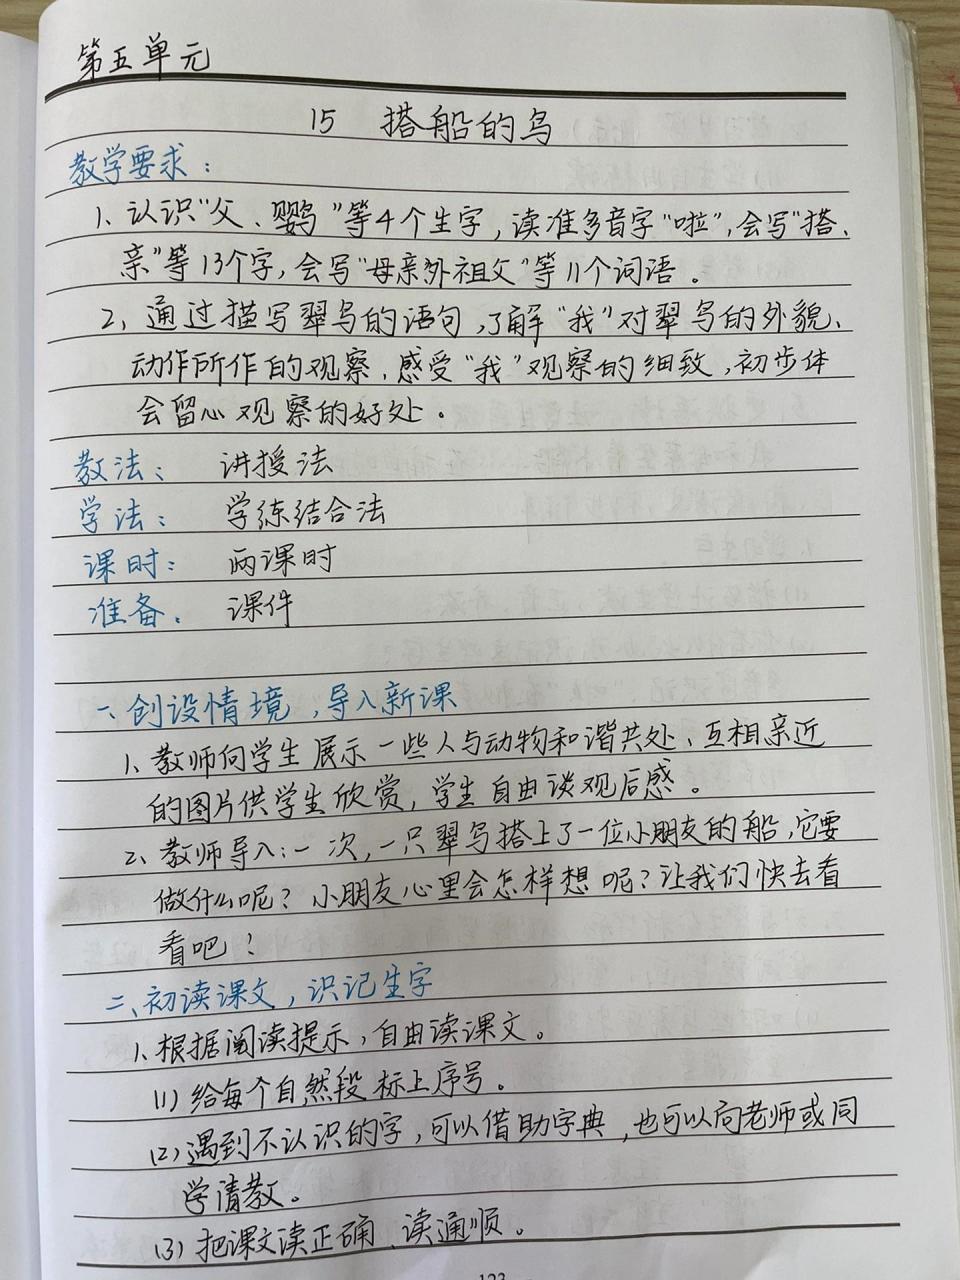 第五单元
15 搭船的鸟
教学要求：
1、认识“父、鹦”等4个生字，读准多音字“啦”，会写“搭、
亲”等13个字，会写“母亲外祖父”等11个词语。
2、通过描写翠鸟的语句，了解“我”对翠鸟的外貌、
动作所作的观察，感受“我”观察的细致，初步体
会留心观察的好处。
教法： 讲授法
学法： 学练结合法
课时： 两课时
准备： 课件
一、创设情境，导入新课
1、教师向学生展示一些人与动物和谐共处、互相亲近
的图片供学生欣赏，学生自由谈观后感。
2、教师导入：一次，一只翠鸟搭上了一位小朋友的船，它要
做什么呢？小朋友心里会怎样想呢？让我们快去看
看吧？
二、初读课文，识记生字
1、根据阅读提示，自由读课文。
(1)给每个自然段标上序号。
(2)遇到不认识的字，可以借助字典，也可以向老师或同
学请教。
(3)把课文读正确、读通顺。
123